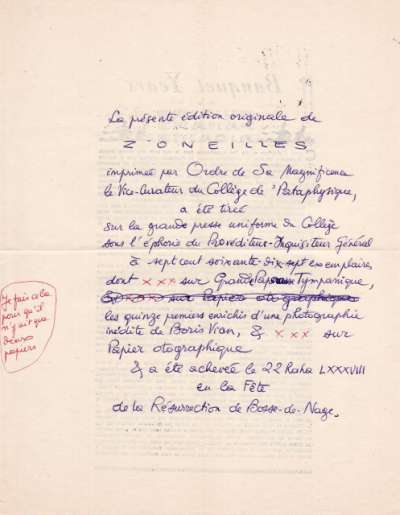 La présente édition originale de
Z'ONEILLES
imprimée par Ordre de Sa Magnificence
le Vice-Curateur du Collège de 'Pataphysique,
a été tirée
sur la grande presse uniforme du Collège
sous l'éphorie du Provéditeur-Inquisiteur Général
à sept cent soixante-dix-sept exemplaires
dont xxx sur Grand Papier Tympanique,
& xxx sur Papier otographique
les quinze premiers enrichis d'une photographie
inédite de Boris Vian, & xxx sur
Papier otographique
& a été achevée le 22 Haha LXXXVIII
en la Fête
de la Résurrection de Bosse-de-Nage.
Je fais cela
pour qu'il
n'y ait que
deux
papiers
Banquet Years